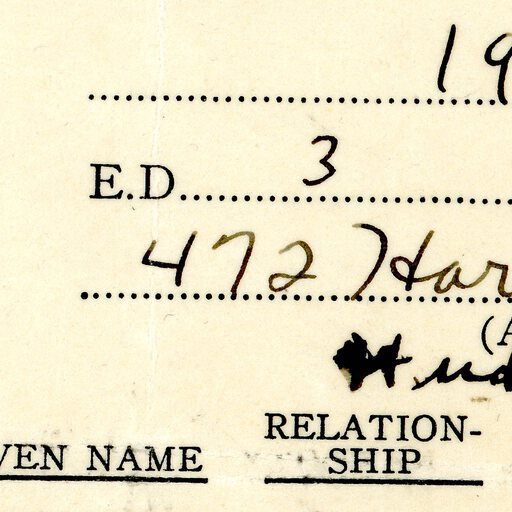 19
E.D. 3
472 Har
(A
Hud
VEN NAME
RELATION-
SHIP